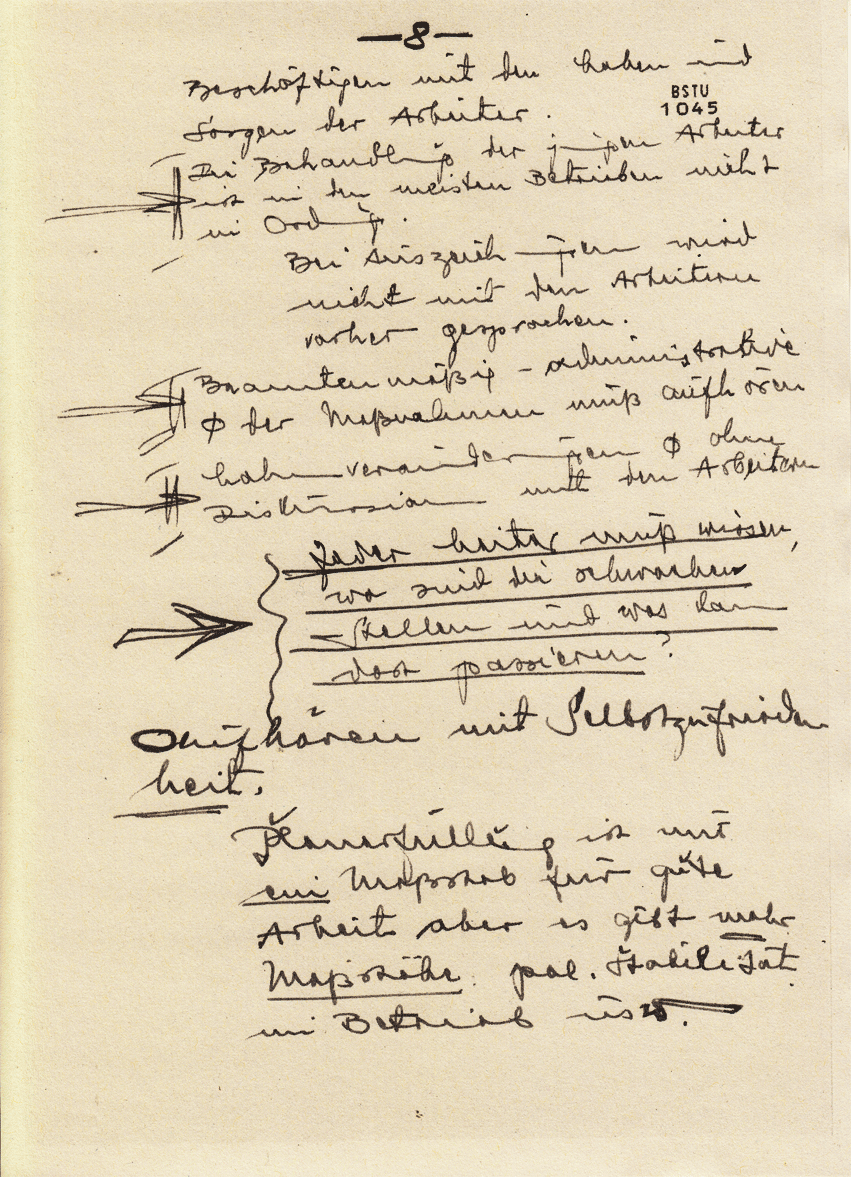 — 8 —
Beschäftigen mit den Leben und
BSTU
1045
Sorgen der Arbeiter.
Die Behandlung der jungen Arbeiter
ist in den meisten Betrieben nicht
in Ordng.
Bei Auszeichnungen wird
nicht mit den Arbeitern
vorher gesprochen.
Beamtenmäßig - administrative
φ der Maßnahmen muß aufhören
Lohnveränderungen φ ohne
Diskussion mit den Arbeitern
Jeder Leiter muß wissen,
wo sind die schwachen
Stellen und was kann
dort passieren?
Aufhören mit Selbstzufrieden
heit.
Planerfüllung ist nur
ein Maßstab für gute
Arbeit aber es gibt mehr
Maßstäbe pol. Stabilität
im Betrieb usw.